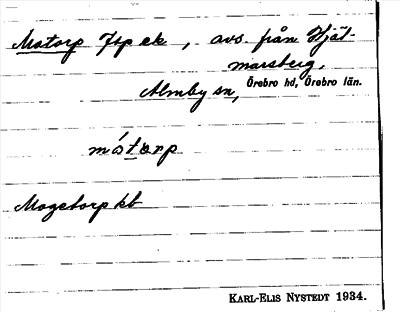 Motorp Jtp ek, avs. från Hjäl-
marsberg,
Almby sn, Örebro hd, Örebro län.
mó͡torp
Mogetorp kb
KARL-ELIS NYSTEDT 1934.